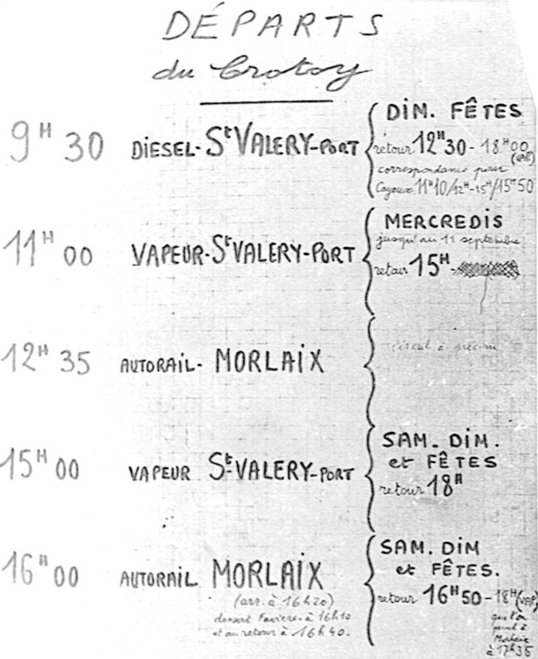 DÉPARTS
du Crotoy
9H 30 DIESEL-St VALERY-PORT
DIM. FÊTES
retour 12H30-18H00
(VAP)
correspondance pour
Cayeux 11H10/12H-15H/15H50
11H 00 VAPEUR-St VALERY-PORT
MERCREDIS
jusqu'au 11 septembre
retour 15H
12H 35 AUTORAIL- MORLAIX
à préciser
15H 00 VAPEUR St VALERY-PORT
SAM. DIM.
et FÊTES
retour 18H
16H 00 AUTORAIL MORLAIX
(arr. à 16h20)
dessert Favières à 16h10
et au retour à 16h40.
SAM. DIM
et FÊTES.
retour 16H50-18H (VAP)
que l'on
prend à
Morlaix
à 17h35